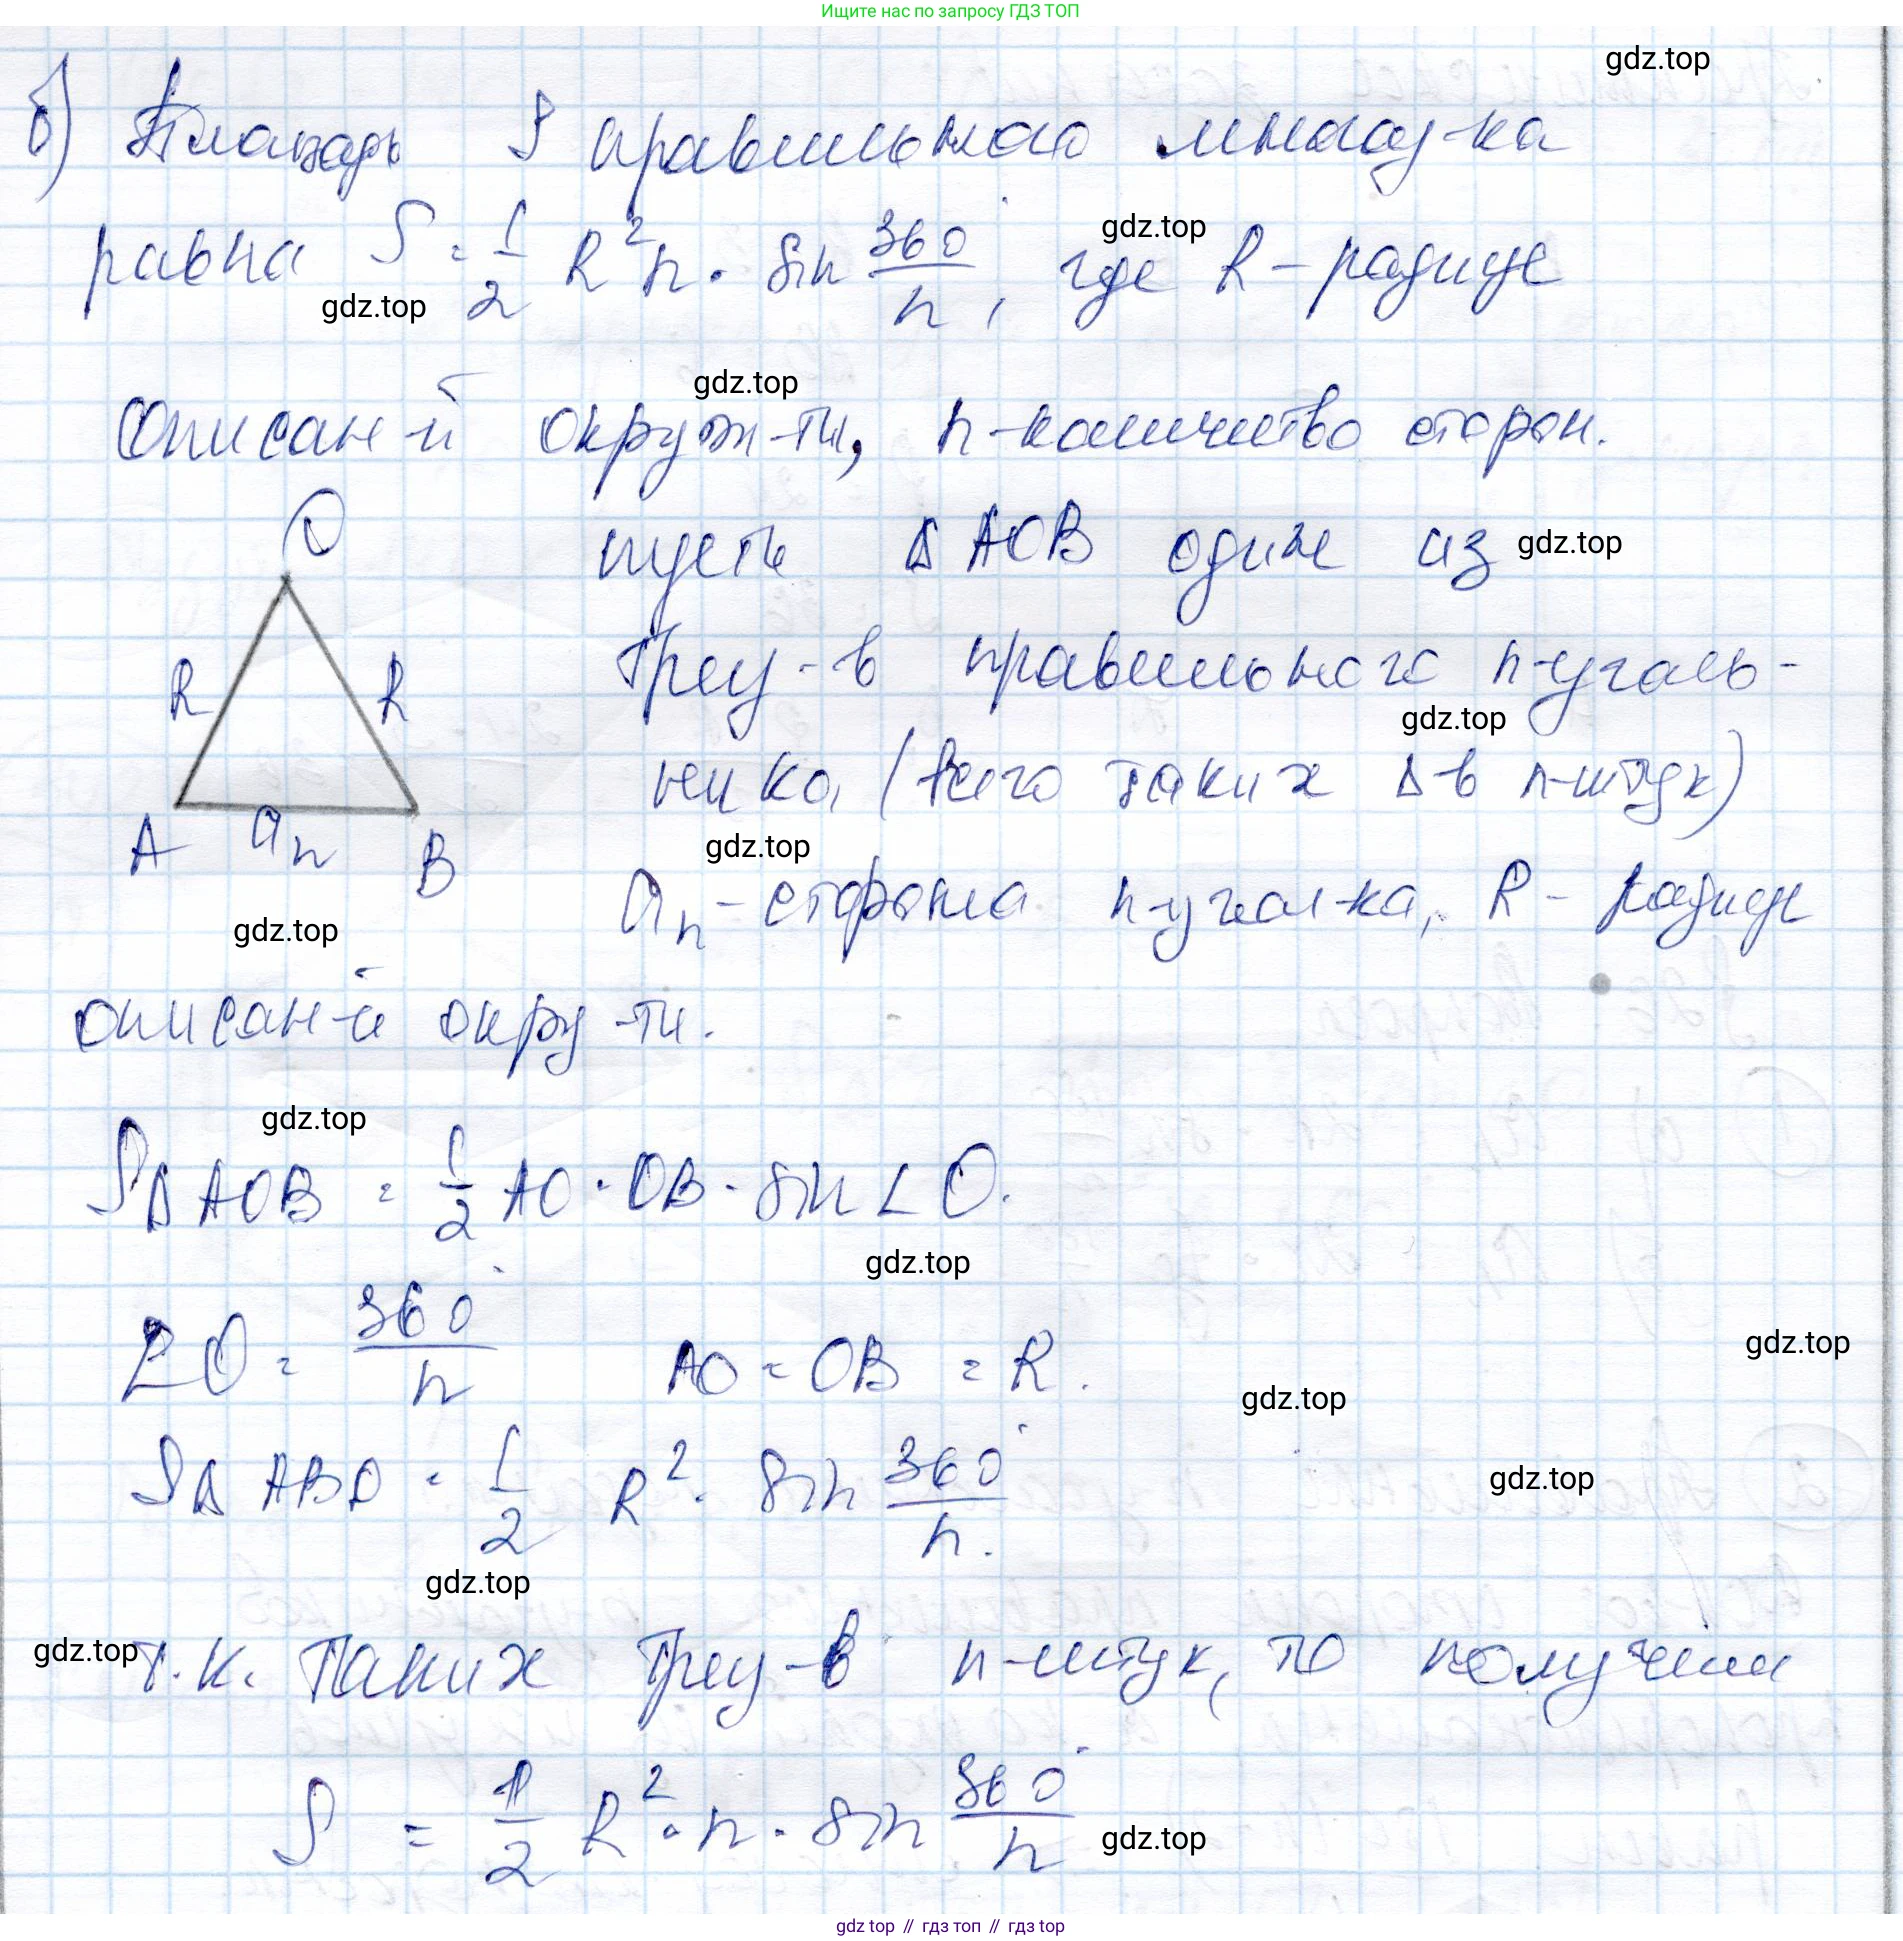 Ищите нас по запросу ГДЗ ТОП
gdz.top
б) Площадь S правильного многоу-ка
равна S = 1/2 R²n · sin 360°/n, где R - радиус
gdz.top
gdz.top
gdz.top
описан-й окруж-ти, n-количество сторон.
O
пусть Δ AOB один из
gdz.top
R R
треу-в правильного n-уголь-
gdz.top
ника (всего таких Δ-в n-штук)
A aₙ B
gdz.top
aₙ - сторона n-угол-ка, R - радиус
gdz.top
описан-й окру-ти.
gdz.top
SΔ AOB = 1/2 AO · OB · sin ∠ O.
gdz.top
∠O = 360°/n AO = OB = R.
gdz.top
gdz.top
SΔ ABO = 1/2 R² · sin 360°/n.
gdz.top
gdz.top
gdz.top
т.к. таких треу-в n-штук, то получим
S = 1/2 R² · n · sin 360°/n
gdz.top
gdz top // гдз топ // гдз top